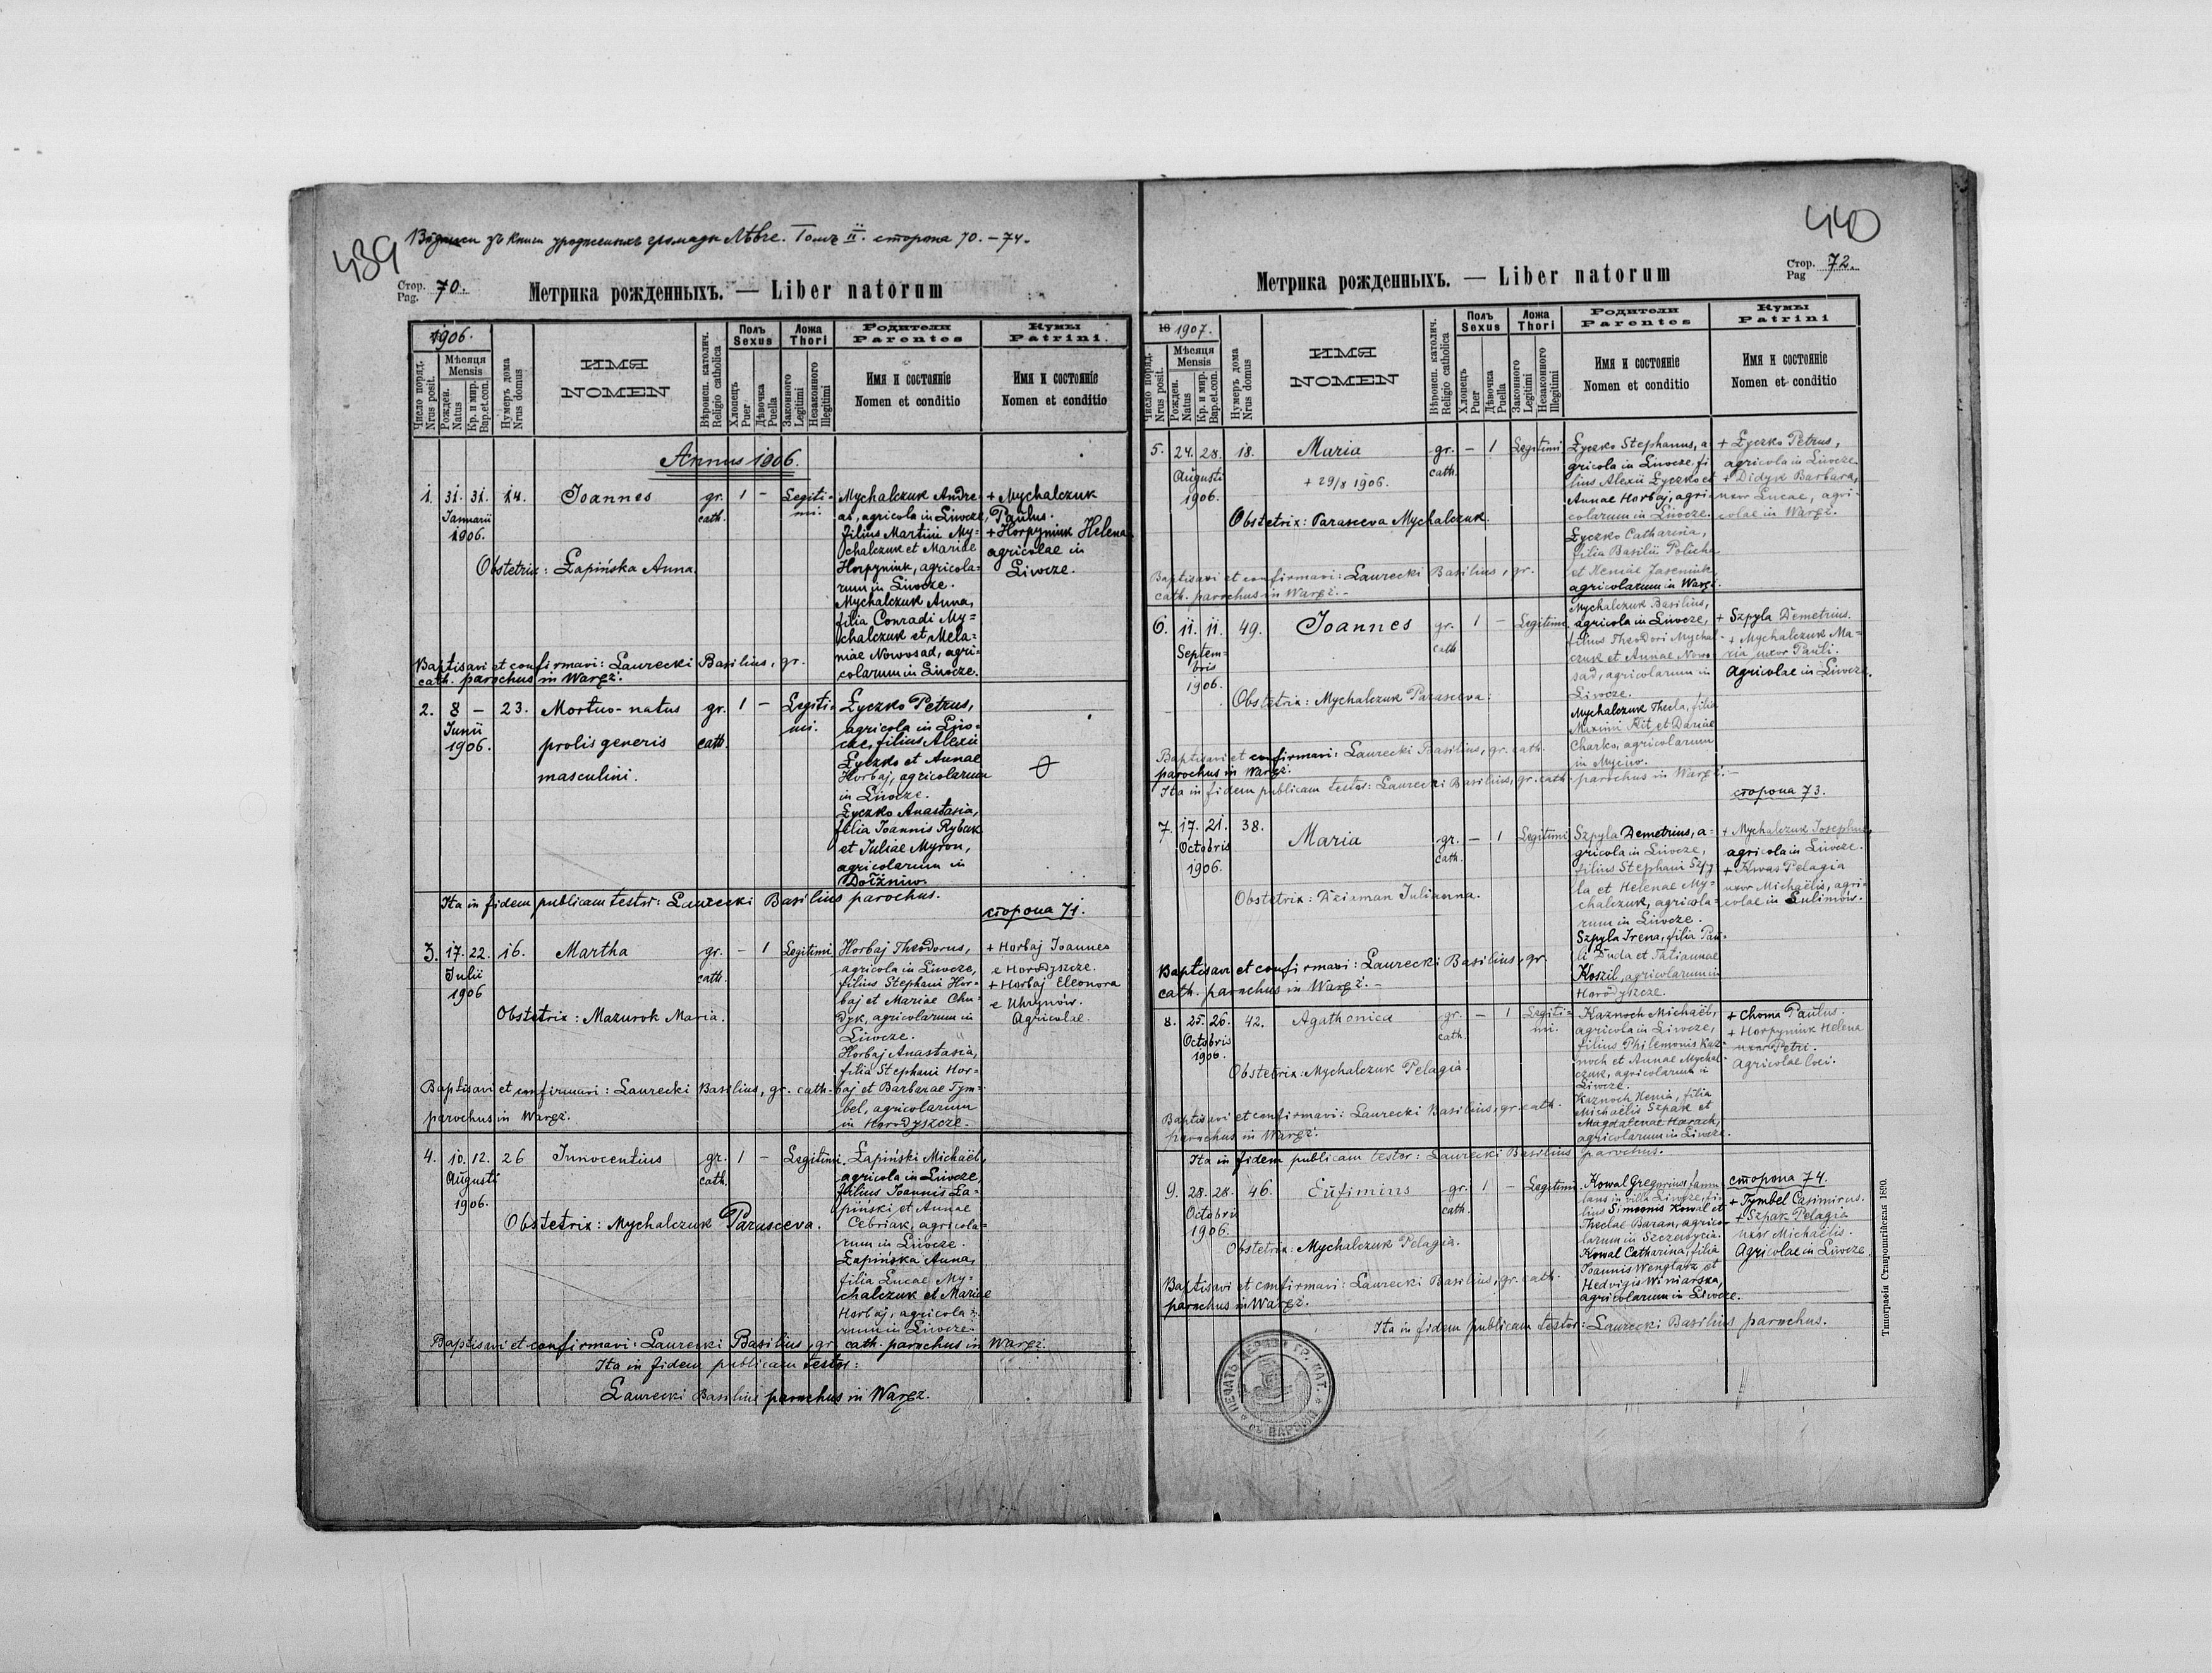 439
Відписи зъ книги урожденныхъ громады Лѣвче. Томъ II. сторона 70.-74.
Стор. Pag. 70.
Метрика рожденныхъ. — Liber natorum
1906.
Число поряд. Nrus posit.
Мѣсяця Mensis
Рожден. Natus
Кр. и мир. Bap. et con.
Нумеръ дома Nrus domus
ИМЯ
NOMEN
Вѣроисп. католич. Religio catholica
Полъ Sexus
Хлопецъ Puer
Дѣвочка Puella
Ложа Thori
Законного Legitimi
Незаконного Illegitimi
Родители
Parentes
Имя и состояніе
Nomen et conditio
Кумы
Patrini.
Имя и состояніе
Nomen et conditio
Annus 1906.
1. 31. 31. 14. Joannes gr. cath. 1 – Legitimi.
Januarii
1906.
Mychalczuk Andre-
as, agricola in Liwcze,
filius Martini My-
chalczuk et Mariae
Horpyniuk, agricola-
rum in Liwcze.
Mychalczuk Anna,
filia Conradi My-
chalczuk et Mela-
niae Nowosad, agri-
colarum in Liwcze.
+ Mychalczuk
Paulus.
+ Horpyniuk Helena
agricolae in
Liwcze.
Obstetrix: Łapińska Anna.
Baptisavi et confirmavi: Laurecki Basilius, gr.
cath. parochus in Waręż.
2. 8 – 23. Mortuo-natus gr. cath. 1 – Legitimi.
Junii
1906.
prolis generis
masculini.
Łyczko Petrus,
agricola in Liw-
cze, filius Alexii
Łyczko et Annae
Horbaj, agricolarum
in Liwcze.
Łyczko Anastasia,
filia Joannis Rybak
et Juliae Myron,
agricolarum in
Dołżniw.
Ita in fidem publicam testor: Laurecki Basilius parochus.
сторона 71.
3. 17. 22. 16. Martha gr. cath. – 1 Legitimi
Julii
1906
Horbaj Theodorus,
agricola in Liwcze,
filius Stephani Hor-
baj et Mariae Chu-
dyk, agricolarum in
Liwcze.
Horbaj Anastasia,
filia Stephani Hor-
baj et Barbarae Tym-
bel, agricolarum
in Horodyszcze.
+ Horbaj Joannes
e Horodyszcze.
+ Horbaj Eleonora
e Uhrynów.
Agricolae.
Obstetrix: Mazurok Maria.
Baptisavi et confirmavi: Laurecki Basilius, gr. cath.
parochus in Waręż.
4. 10. 12. 26 Innocentius gr. cath. 1 – Legitimi.
Augusti
1906.
Łapiński Michaël,
agricola in Liwcze,
filius Joannis Ła-
piński et Annae
Cebriak, agricola-
rum in Liwcze.
Łapińska Anna,
filia Lucae My-
chalczuk et Mariae
Horbaj, agricola-
rum in Liwcze.
Obstetrix: Mychalczuk Parasceva.
Baptisavi et confirmavi: Laurecki Basilius, gr. cath. parochus in Waręż.
Ita in fidem publicam testor:
Laurecki Basilius parochus in Waręż.
440
Стор. Pag 72.
Метрика рожденныхъ. — Liber natorum
18 1907.
Число поряд. Nrus posit.
Мѣсяця Mensis
Рожден. Natus
Кр. и мир. Bap. et con.
Нумеръ дома Nrus domus
ИМЯ
NOMEN
Вѣроисп. католич. Religio catholica
Полъ Sexus
Хлопецъ Puer
Дѣвочка Puella
Ложа Thori
Законного Legitimi
Незаконного Illegitimi
Родители
Parentes
Имя и состояніе
Nomen et conditio
Кумы
Patrini
Имя и состояніе
Nomen et conditio
5. 24. 28. 18. Maria gr. cath. – 1 Legitimi
Augusti
1906.
+ 29/8 1906.
Łyczko Stephanus, a-
gricola in Liwcze, fi-
lius Alexii Łyczko et
Annae Horbaj, agri-
colarum in Liwcze.
Łyczko Catharina,
filia Basilii Policha
et Xeniae Jaseniuk
agricolarum in Waręż.
+ Łyczko Petrus,
agricola in Liwcze
+ Didyk Barbara,
uxor Lucae, agri-
colae in Waręż.
Obstetrix: Parasceva Mychalczuk.
Baptisavi et confirmavi: Laurecki Basilius, gr.
cath. parochus in Waręż.-
6. 11. 11. 49. Joannes gr. cath 1 – Legitimi
Septem-
bris
1906.
Mychalczuk Basilius,
agricola in Liwcze,
filius Theodori Mychal-
czuk et Annae Nowo-
sad, agricolarum in
Liwcze.
Mychalczuk Thecla, filia
Maximi Kit et Dariae
Charko, agricolarum
in Myców.
+ Szpyla Demetrius.
+ Mychalczuk Ma-
ria uxor Pauli.
Agricolae in Liwcze.
Obstetrix: Mychalczuk Parasceva.
Baptisavi et confirmavi: Laurecki Basilius, gr. cath.
parochus in Waręż.
Ita in fidem publicam testor: Laurecki Basilius, gr. cath. parochus in Waręż.-
сторона 73.
7. 17. 21. 38. Maria gr. cath. – 1 Legitimi
Octobris
1906.
Szpyla Demetrius, a-
gricola in Liwcze,
filius Stephani Szpy-
la et Helenae My-
chalczuk, agricola-
rum in Liwcze.
Szpyla Irena, filia Pau-
li Duda et Tatiannae
Koszil, agricolarum in
Horodyszcze.
+ Mychalczuk Josephus,
agricola in Liwcze.
+ Kwas Pelagia
uxor Michaëlis, agri-
colae in Sulimów.
Obstetrix: Dziaman Julianna.
Baptisavi et confirmavi: Laurecki Basilius, gr.
cath. parochus in Waręż.-
8. 25. 26. 42. Agathonica gr. cath. – 1 Legitimi.
Octobris
1906.
Kaznoch Michaël,
agricola in Liwcze,
filius Philemonis Kaz-
noch et Annae Mychal-
czuk, agricolarum in
Liwcze.
Kaznoch Xenia, filia
Michaëlis Szpak et
Magdalenae Harach,
agricolarum in Liwcze.
+ Choma Paulus.
+ Horpyniuk Helena
uxor Petri.
Agricolae loci.
Obstetrix: Mychalczuk Pelagia.
Baptisavi et confirmavi: Laurecki Basilius, gr. cath.
parochus in Waręż.
Ita in fidem publicam testor: Laurecki Basilius parochus.
9. 28. 28. 46. Eufimius gr. cath. 1 – Legitimi.
Octobris
1906.
Kowal Gregorius, famu-
lans in villa Liwcze, fi-
lius Simeonis Kowal et
Theclae Baran, agrico-
larum in Szczebrycia.
Kowal Catharina, filia
Joannis Wenglarz et
Hedvigis Winiarska,
agricolarum in Liwcze.
сторона 74.
+ Tymbel Casimirus.
+ Szpak Pelagia
uxor Michaëlis.
Agricolae in Liwcze.
Obstetrix: Mychalczuk Pelagia.
Baptisavi et confirmavi: Laurecki Basilius, gr. cath.
parochus in Waręż.
Ita in fidem publicam testor: Laurecki Basilius parochus.
ПЕЧАТЬ ЦЕРКВИ ГР. КАТ.
Типографія Ставропигійская 1890.